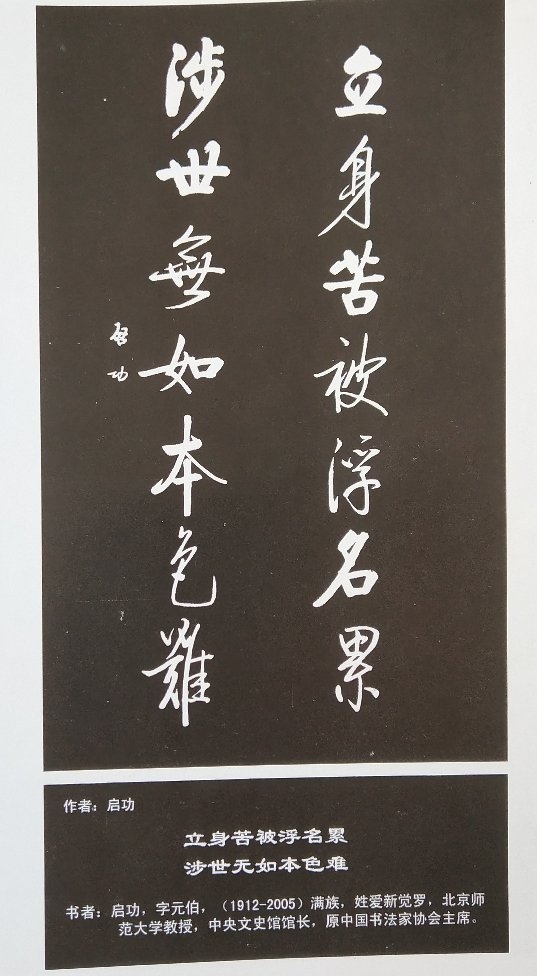 立身苦被浮名累
涉世無如本色難
啓功
作者：启功
立身苦被浮名累
涉世无如本色难
书者：启功，字元伯，（1912-2005）满族，姓爱新觉罗，北京师
范大学教授，中央文史馆馆长，原中国书法家协会主席。